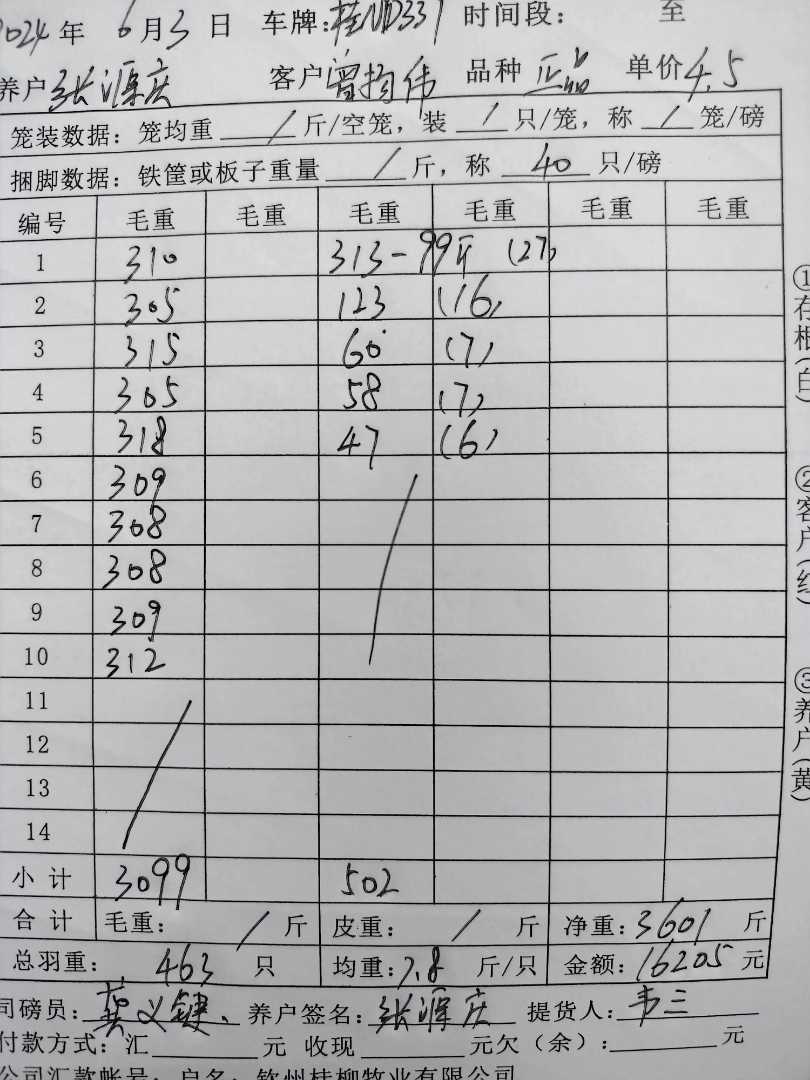 2024年 6月3日 车牌:桂ND337 时间段: 至
养户 张源庆 客户 曾均伟 品种 正品 单价 4.5
笼装数据: 笼均重 / 斤/空笼, 装 / 只/笼, 称 / 笼/磅
捆脚数据: 铁筐或板子重量 / 斤, 称 40 只/磅
编号 毛重 毛重 毛重 毛重 毛重 毛重
1 310 313-99斤 (27)
2 305 123 (16)
3 315 60 (7)
4 305 58 (7)
5 318 47 (6)
6 309
7 308
8 308
9 309
10 312
11
12
13
14
小计 3099 502
合计 毛重: / 斤 皮重: / 斤 净重: 3601 斤
总羽重: 463 只 均重: 7.8 斤/只 金额: 16205 元
司磅员: 龚义键 养户签名: 张源庆 提货人: 韦三
付款方式: 汇 元 收现 元欠(余): 元
公司汇款帐号: 户名: 钦州桂柳牧业有限公司
①存根(白)
②客户(红)
③养户(黄)